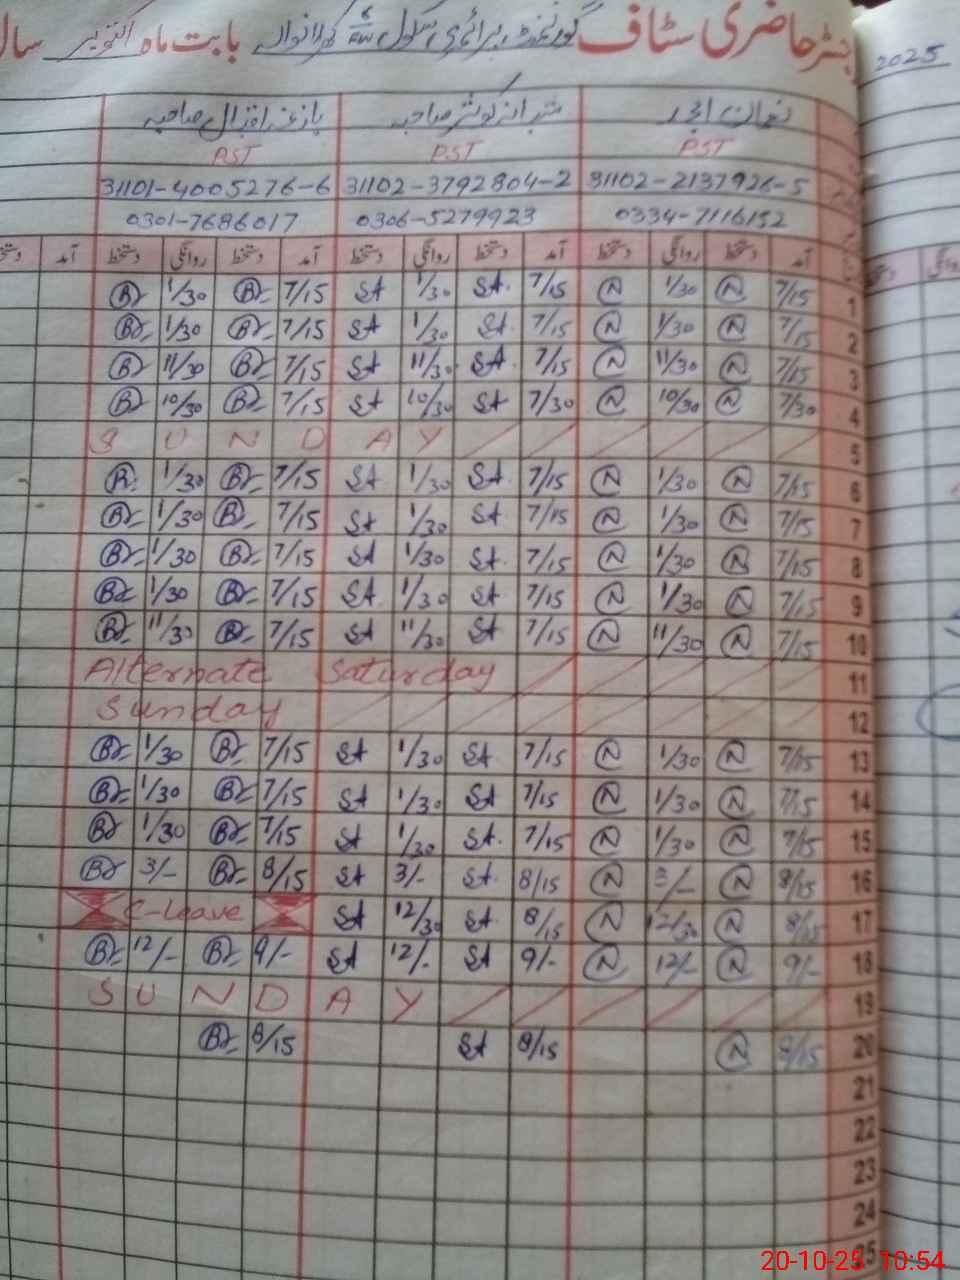 رجسٹر حاضری سٹاف گورنمنٹ پرائمری سکول بابت ماہ اکتوبر سال 2025
نعمان امجد
PST PST PST
31101-4005276-6 31102-3792804-2 31102-2137926-5
0301-7686017 0306-5279923 0334-7116152
آمد دستخط روانگی دستخط آمد دستخط روانگی دستخط آمد دستخط روانگی دستخط آمد
Br 1/30 Br 7/15 SA 1/30 SA 7/15 N 1/30 N 7/15 1
Br 1/30 Br 7/15 SA 1/30 SA 7/15 N 1/30 N 7/15 2
Br 11/30 Br 7/15 SA 11/30 SA 7/15 N 11/30 N 7/15 3
Br 10/30 Br 7/15 SA 10/30 SA 7/30 N 10/30 N 7/30 4
SUNDAY 5
Br 1/30 Br 7/15 SA 1/30 SA 7/15 N 1/30 N 7/15 6
Br 1/30 Br 7/15 SA 1/30 SA 7/15 N 1/30 N 7/15 7
Br 1/30 Br 7/15 SA 1/30 SA 7/15 N 1/30 N 7/15 8
Br 1/30 Br 7/15 SA 1/30 SA 7/15 N 1/30 N 7/15 9
Br 11/30 Br 7/15 SA 11/30 SA 7/15 N 11/30 N 7/15 10
Alternate Saturday 11
Sunday 12
Br 1/30 Br 7/15 SA 1/30 SA 7/15 N 1/30 N 7/15 13
Br 1/30 Br 7/15 SA 1/30 SA 7/15 N 1/30 N 7/15 14
Br 1/30 Br 7/15 SA 1/30 SA 7/15 N 1/30 N 7/15 15
Br 3/- Br 8/15 SA 3/- SA 8/15 N 3/- N 8/15 16
C-Leave SA 12/30 SA 8/15 N 12/30 N 8/15 17
Br 12/- Br 9/- SA 12/- SA 9/- N 12/- N 9/- 18
SUNDAY 19
Br 8/15 SA 8/15 N 8/15 20
21
22
23
24
25
20-10-25 10:54